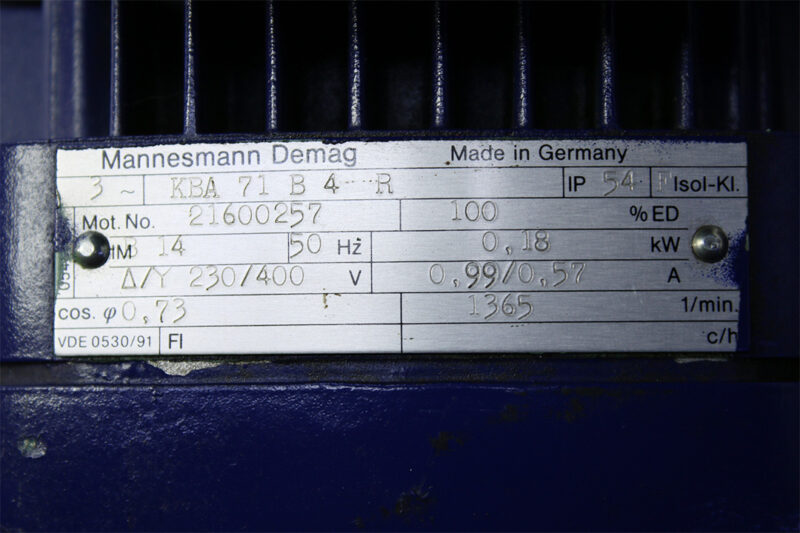 Mannesmann Demag Made in Germany
3 ~ KBA 71 B 4 R IP 54 F Isol-Kl.
Mot. No. 21600257 100 % ED
IM B 14 50 Hz 0,18 kW
Δ/Y 230/400 V 0,99/0,57 A
cos. φ 0,73 1365 1/min.
VDE 0530/91 FI c/h